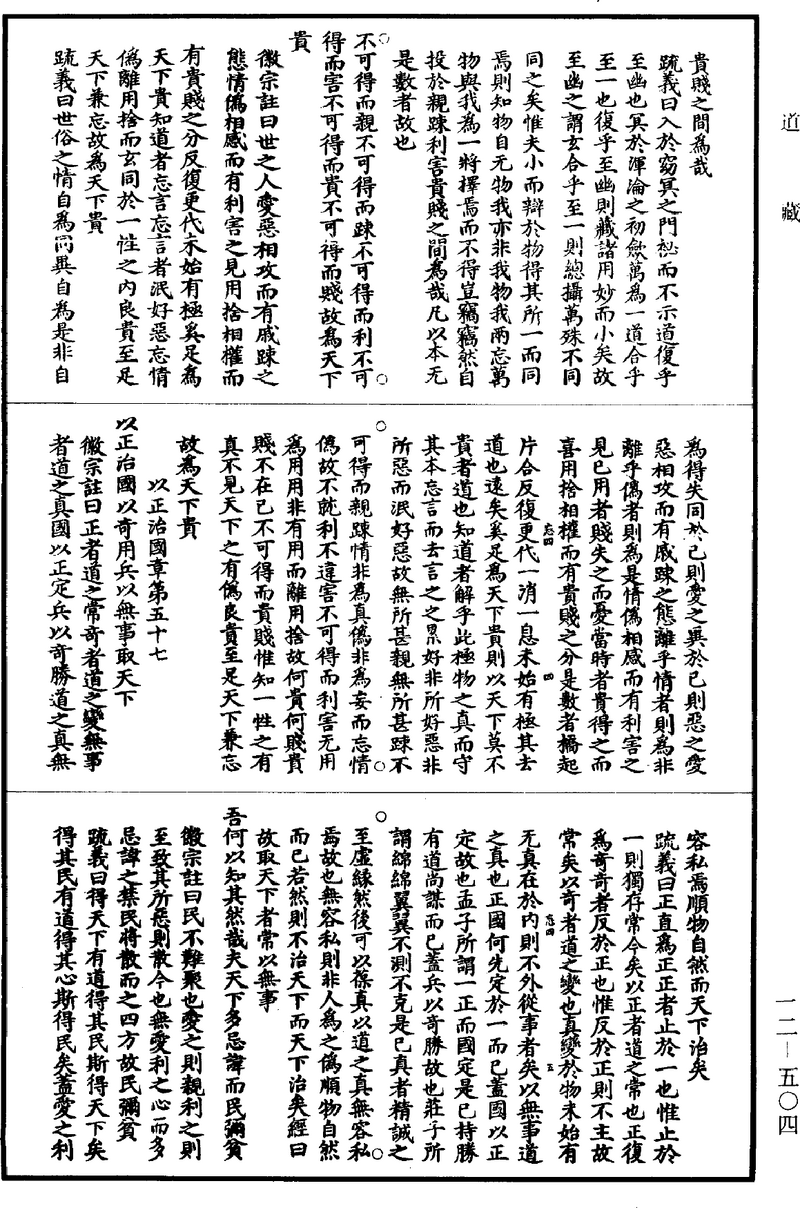 道藏
貴賤之間為哉
疏義曰入於窈冥之門祕而不示道復乎
至幽也冥於渾淪之初歛萬為一道合乎
至一也復乎至幽則藏諸用妙而小矣故
至幽之謂玄合乎至一則總攝萬殊不同
同之矣惟夫小而辯於物得其所一而同
焉則知物自无物我亦非我物我兩忘萬
物與我為一將擇焉而不得豈竊竊然自
投於親踈利害貴賤之間為哉凡以本无
是數者故也
不可得而親不可得而踈不可得而利不可
得而害不可得而貴不可得而賤故為天下
貴
徽宗註曰世之人愛惡相攻而有戚踈之
態情偽相感而有利害之見用捨相權而
有貴賤之分反復更代未始有極奚足為
天下貴知道者忘言忘言者泯好惡忘情
偽離用捨而玄同於一性之內良貴至足
天下兼忘故為天下貴
疏義曰世俗之情自為同異自為是非自
為得失同於己則愛之異於己則惡之愛
惡相攻而有戚踈之態離乎情者則為非
離乎偽者則為是情偽相感而有利害之
見已用者賤失之而憂當時者貴得之而
喜用捨相權而有貴賤之分是數者橋起
片合反復更代一消一息未始有極其去
道也遠矣奚足為天下貴則以天下莫不
貴者道也知道者解乎此極物之真而守
其本忘言而去言之之累好非所好惡非
所惡而泯好惡故無所甚親無所甚踈不
可得而親踈情非為真偽非為妄而忘情
偽故不就利不違害不可得而利害无用
為用用非有用而離用捨故何貴何賤貴
賤不在己不可得而貴賤惟知一性之有
真不見天下之有偽良貴至足天下兼忘
故為天下貴
以正治國章第五十七
以正治國以奇用兵以無事取天下
徽宗註曰正者道之常奇者道之變無事
者道之真國以正定兵以奇勝道之真無
容私焉順物自然而天下治矣
疏義曰正直為正正者止於一也惟止於
一則獨存常今矣以正者道之常也正復
為奇奇者反於正也惟反於正則不主故
常矣以奇者道之變也真變於物未始有
无真在於內則不外從事者矣以無事道
之真也正國何先定於一而已蓋國以正
定故也孟子所謂一正而國定是已持勝
有道尚謀而已蓋兵以奇勝故也莊子所
謂綿綿翼翼不測不克是已真者精誠之
至虛緣然後可以葆真以道之真無容私
焉故也無容私則非人為之偽順物自然
而已若然則不治天下而天下治矣經曰
故取天下者常以無事
吾何以知其然哉夫天下多忌諱而民彌貧
徽宗註曰民不難聚也愛之則親利之則
至致其所惡則散今也無愛利之心而多
忌諱之禁民將散而之四方故民彌貧
疏義曰得天下有道得其民斯得天下矣
得其民有道得其心斯得民矣蓋愛之利
一二—五〇四